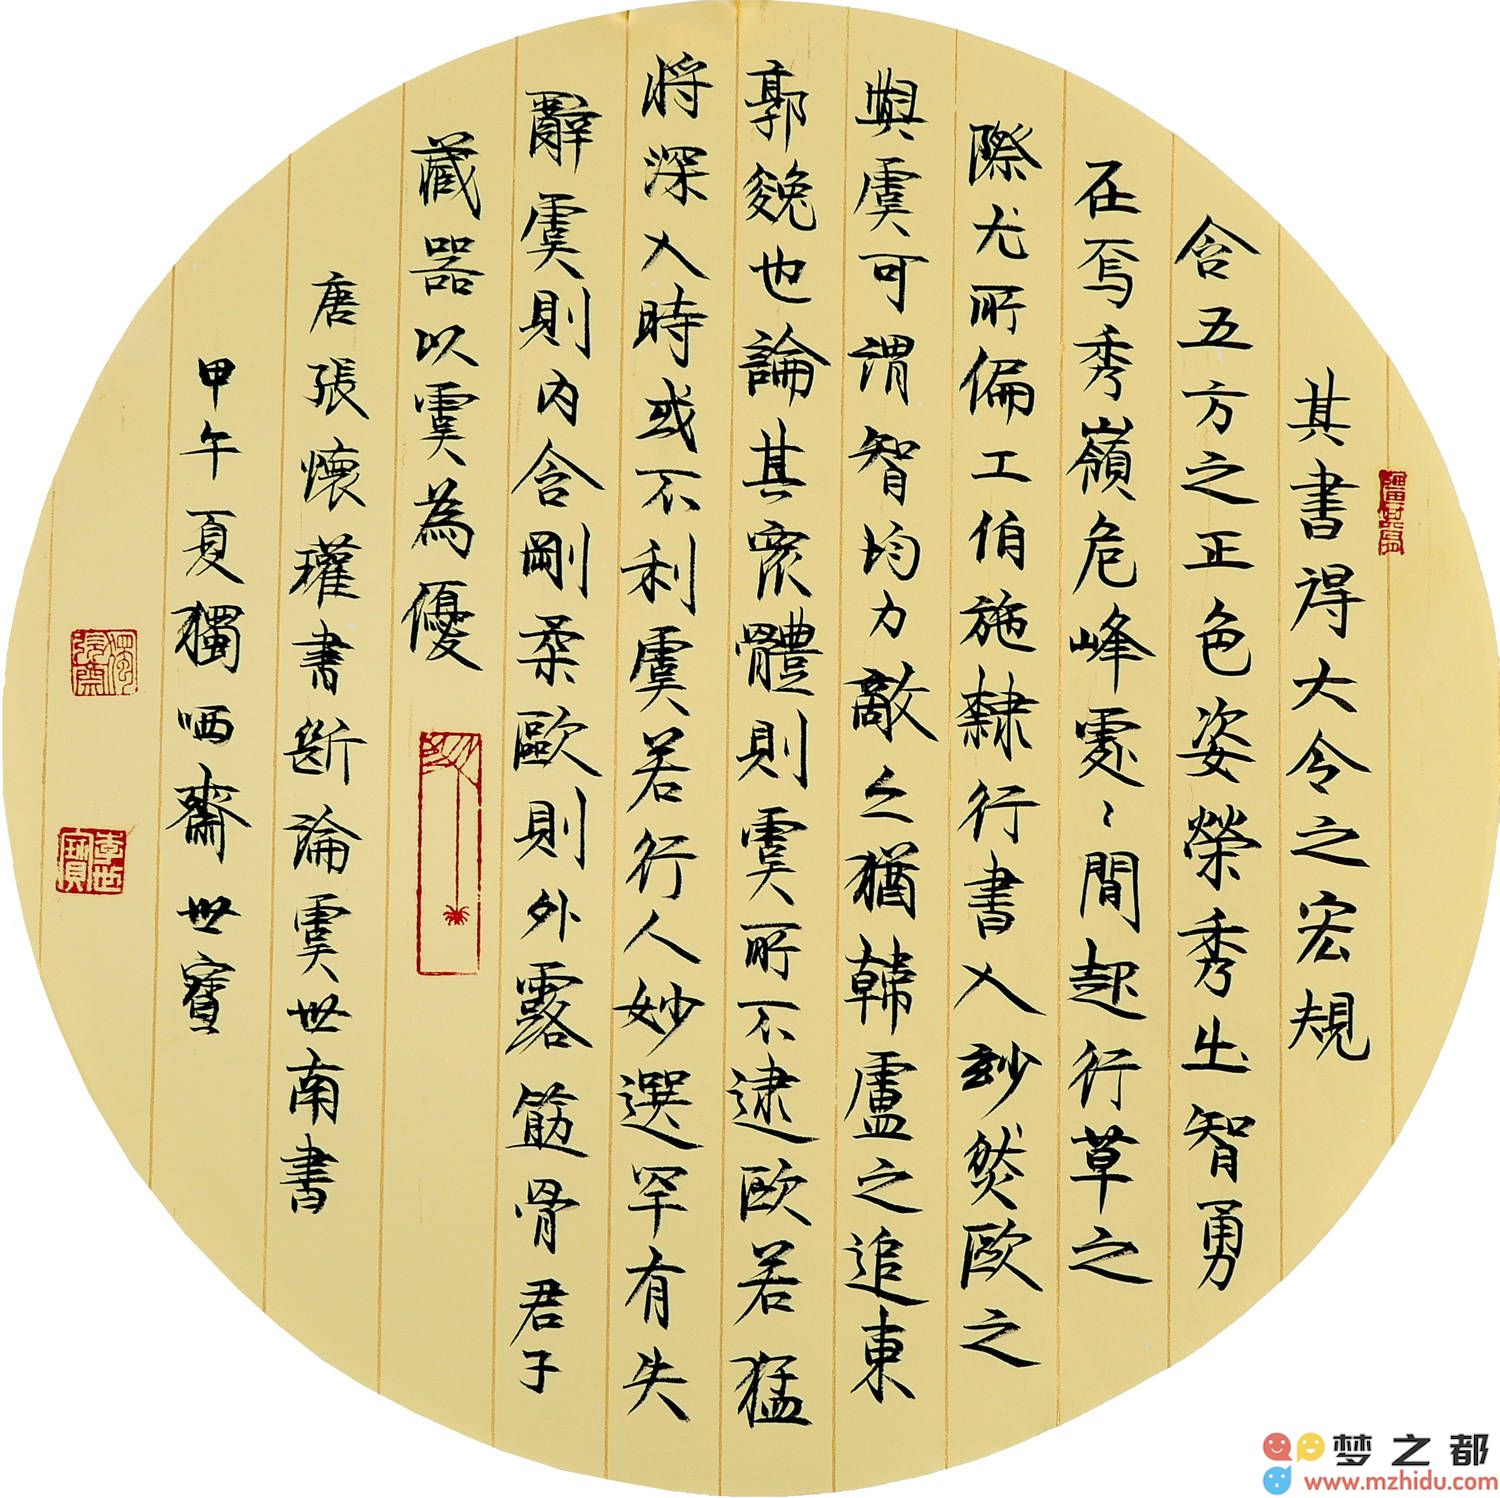 其書得大令之宏規
含五方之正色姿榮秀出智勇
在焉秀嶺危峰處〻間起行草之
際尤所偏工伯施隸行書入妙然歐之
與虞可謂智均力敵亦猶韓盧之追東
郭㕙也論其衆體則虞所不逮歐若猛
將深入時或不利虞若行人妙選罕有失
辭虞則內含剛柔歐則外露筋骨君子
藏器以虞為優
唐張懷瓘書斷論虞世南書
甲午夏獨哂齋世寶
李世寶
梦之都
www.mzhidu.com